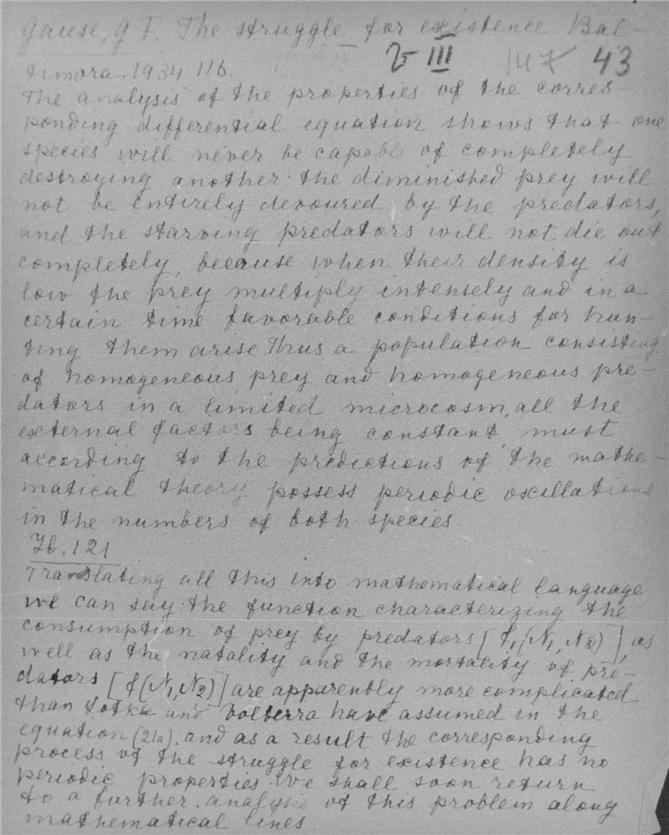 Gause, G F. The struggle for existence. Bal-
timora. 1934 116.
V III 147 43
The analysis of the properties of the corres-
ponding differential equation shows that one
species will never be capable of completely
destroying another: the diminished prey will
not be entirely devoured by the predators,
and the starving predators will not die out
completely, because when their density is
low the prey multiply intensely and in a
certain time favorable conditions for hun-
ting them arise. Thus a population consisting
of homogeneous prey and homogeneous pre-
dators in a limited microcosm, all the
external factors being constant, must
according to the predictions of the mathe-
matical theory possess periodic oscillations
in the numbers of both species
Ib. 121
Translating all this into mathematical language
we can say: the function characterizing the
consumption of prey by predators [f₁(N₁, N₂)], as
well as the natality and the mortality of pre-
dators [f(N₁, N₂)] are apparently more complicated
than Lotka and Volterra have assumed in the
equation (21a), and as a result the corresponding
process of the struggle for existence has no
periodic properties. We shall soon return
to a further analysis of this problem along
mathematical lines